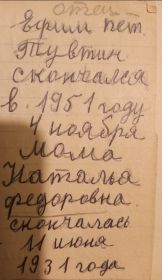 отец
Ефим пет.
Тувтин
скончался
в. 1951 году
4 ноября
мома
Наталья
федоровна.
скончалась
11 июня
1931 года